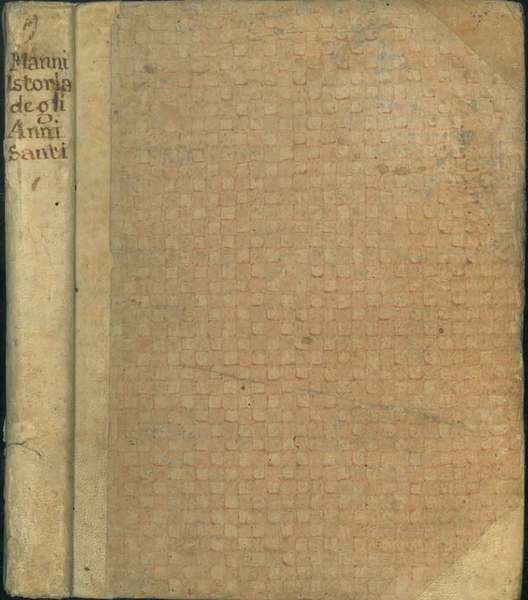 Manni
Istoria
degli
Anni
Santi